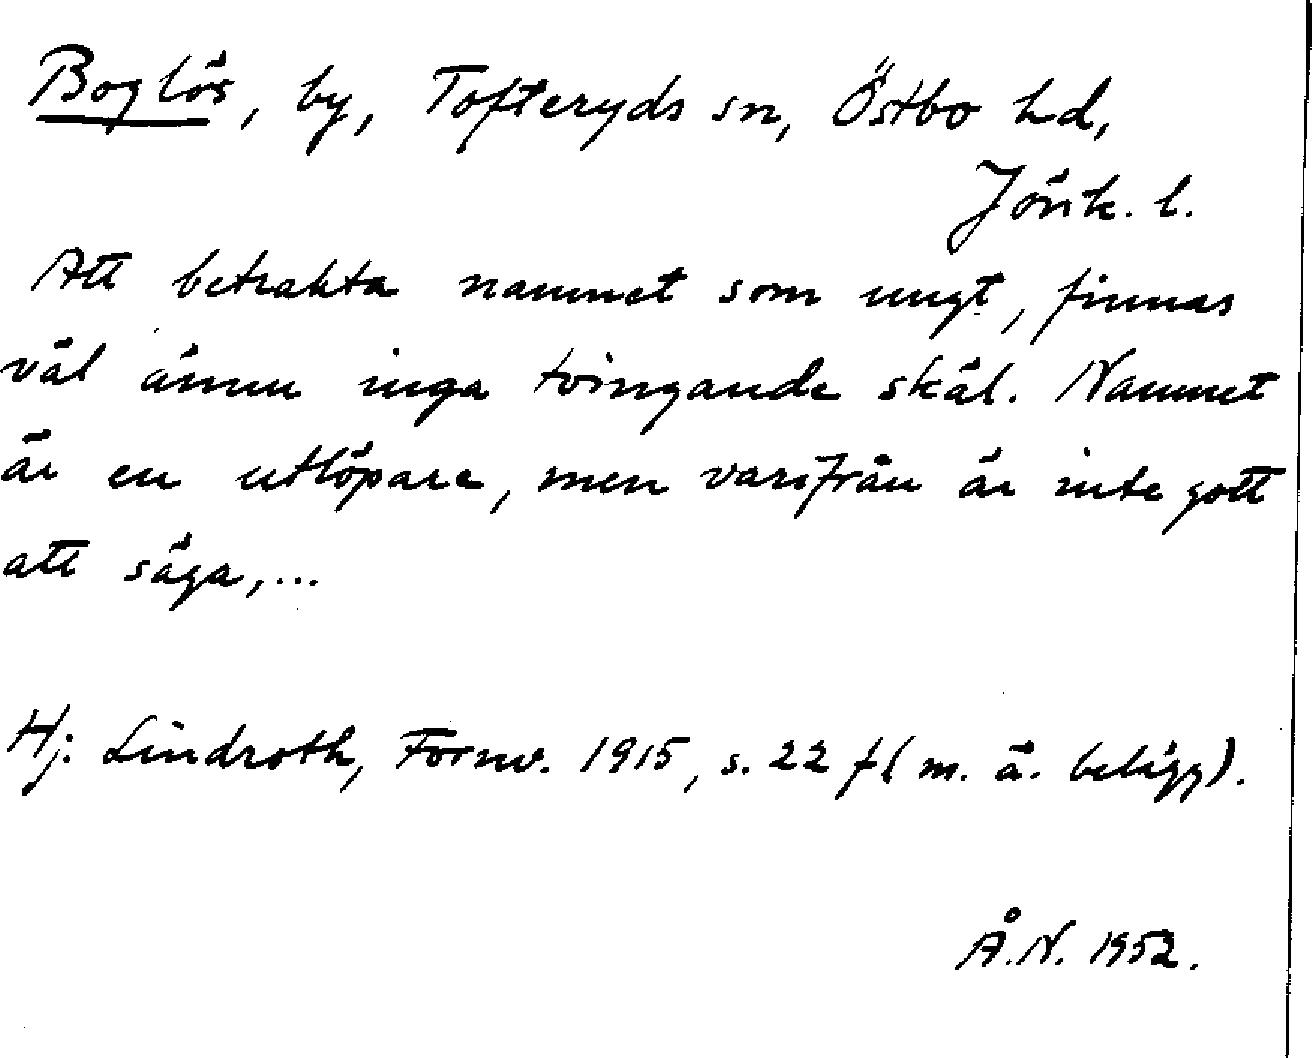 Boglös, by, Tofteryds sn, Östbo hd,
Jönk. l.
Att betrakta namnet som ungt, finnas
väl ännu inga tvingande skäl. Namnet
är en utlöpare, men varifrån är inte gott
att säga,...
Hj. Lindroth, Fornv. 1915, s. 22 f (m. ä. belägg).
Å.N. 1952.